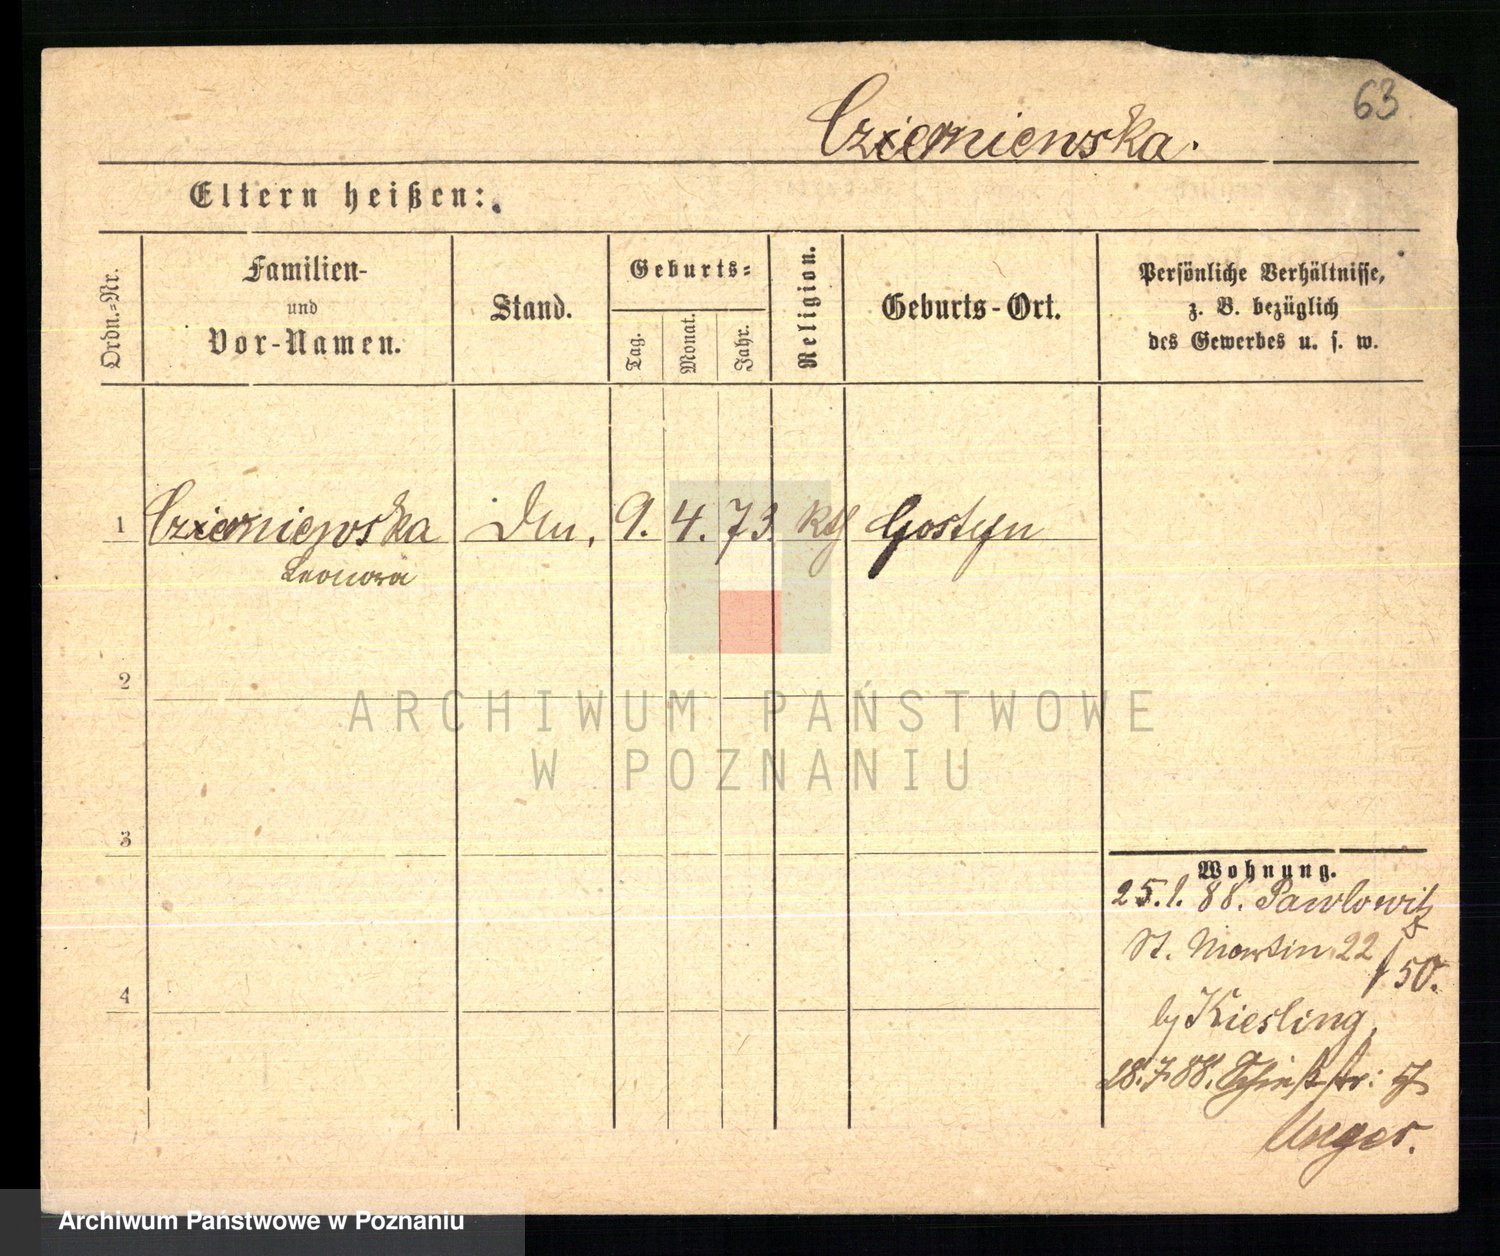 63
Czierniewska.
Eltern heißen:
Ordn.-Nr.
Familien-
und
Vor-Namen.
Stand.
Geburts-
Tag.
Monat.
Jahr.
Religion.
Geburts-Ort.
Persönliche Verhältnisse,
z. B. bezüglich
des Gewerbes u. s. w.
1 Czierniewska 9. 4. 73 kth Gostyn
Leonora
2
3
4
Wohnung.
25.1.88. Pawlowitz
St. Martin 22 / 50.
by Kiesling,
28.7.88. Schießstr: 5
Unger.
ARCHIWUM PAŃSTWOWE
W POZNANIU
Archiwum Państwowe w Poznaniu